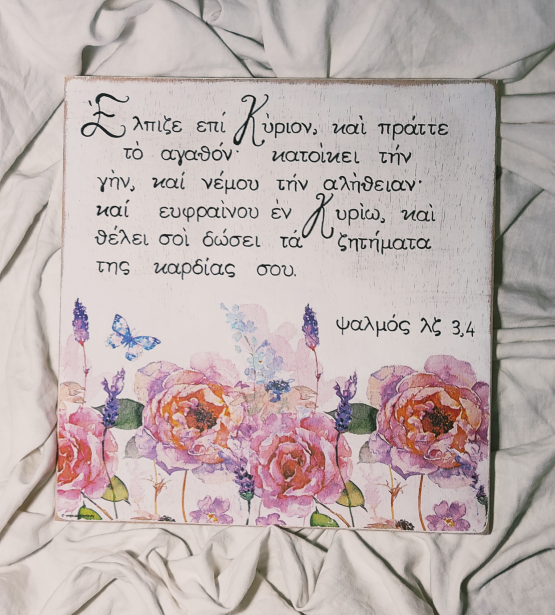 Ἔλπιζε επί Κὺριον, καὶ πράττε
τὸ αγαθόν· κατοίκει τήν
γὴν, καί νέμου τήν αλὴθειαν·
καί ευφραίνου ἐν Κυρίω, καὶ
θέλει σοὶ δώσει τά ζητήματα
της καρδίας σου.
ψαλμός λζ 3,4